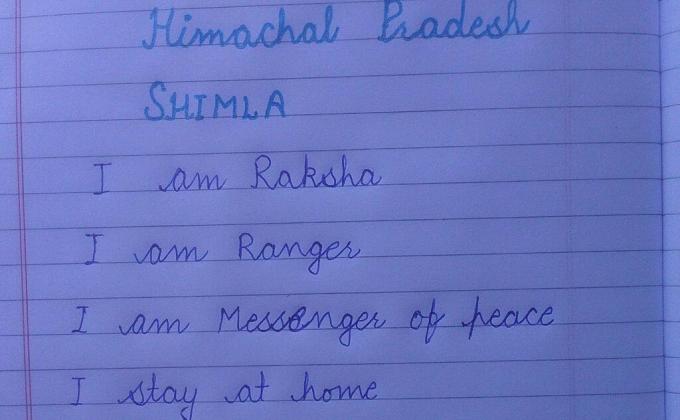 Himachal Pradesh
SHIMLA
I am Raksha
I am Ranger
I am Messenger of peace
I stay at home